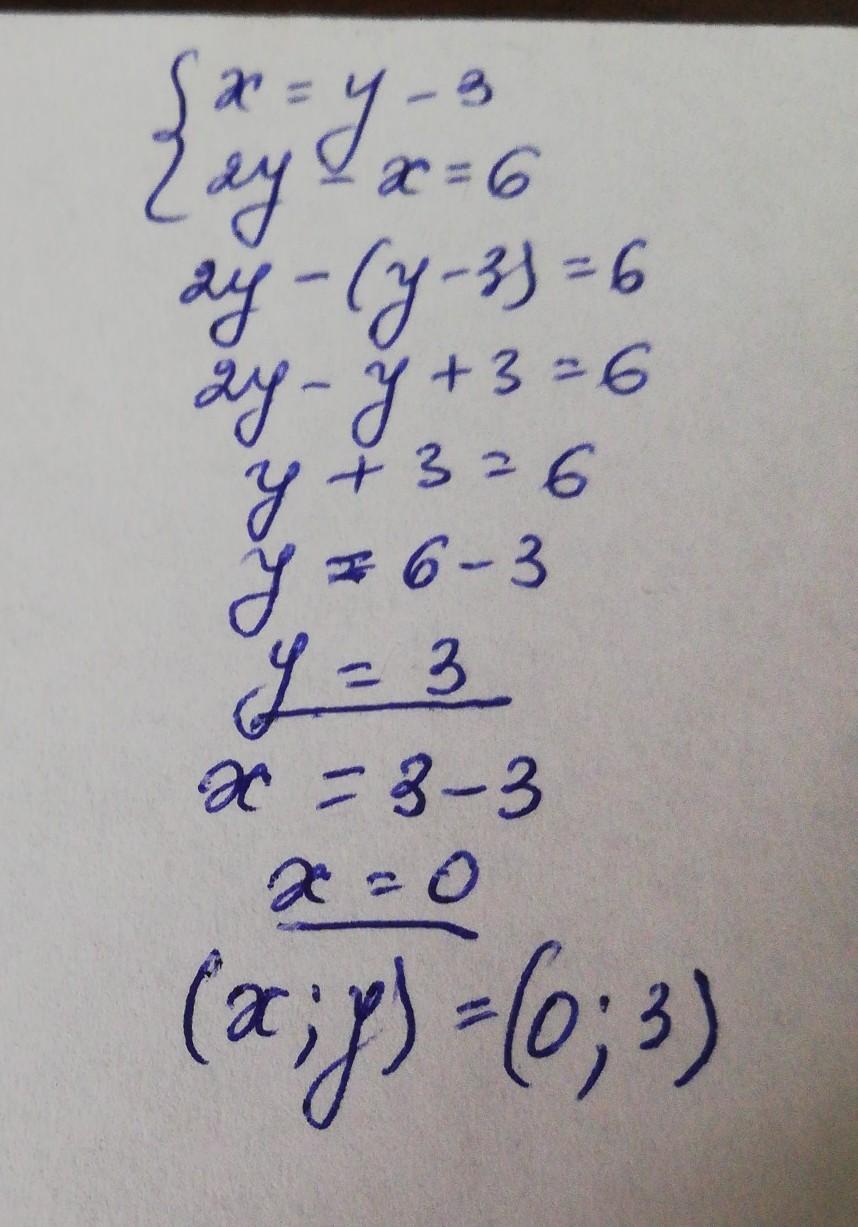 { x = y - 3
2y - x = 6
2y - (y - 3) = 6
2y - y + 3 = 6
y + 3 = 6
y = 6 - 3
y = 3
x = 3 - 3
x = 0
(x; y) = (0; 3)